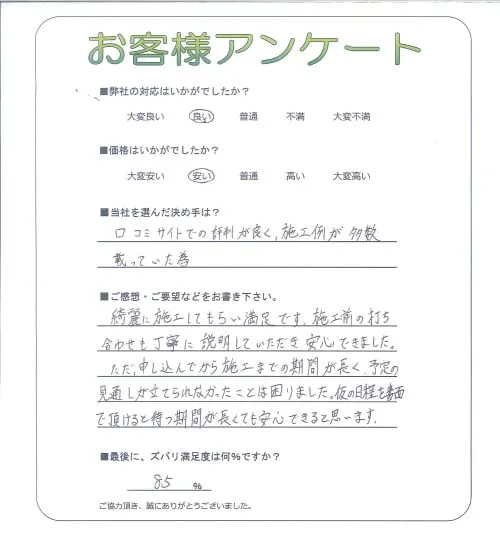 お客様アンケート
■弊社の対応はいかがでしたか？
大変良い 良い 普通 不満 大変不満
■価格はいかがでしたか？
大変安い 安い 普通 高い 大変高い
■当社を選んだ決め手は？
口コミサイトでの評判が良く,施工例が多数
載っていた為
■ご感想・ご要望などをお書き下さい。
綺麗に施工してもらい満足です。施工前の打ち
合わせも丁寧に説明していただき安心できました。
ただ,申し込んでから施工までの期間が長く、予定の
見通しが立てられなかったことは困りました。仮の日程を書面
で頂けると待つ期間が長くても安心できると思います。
■最後に、ズバリ満足度は何%ですか？
85 %
ご協力頂き、誠にありがとうございました。